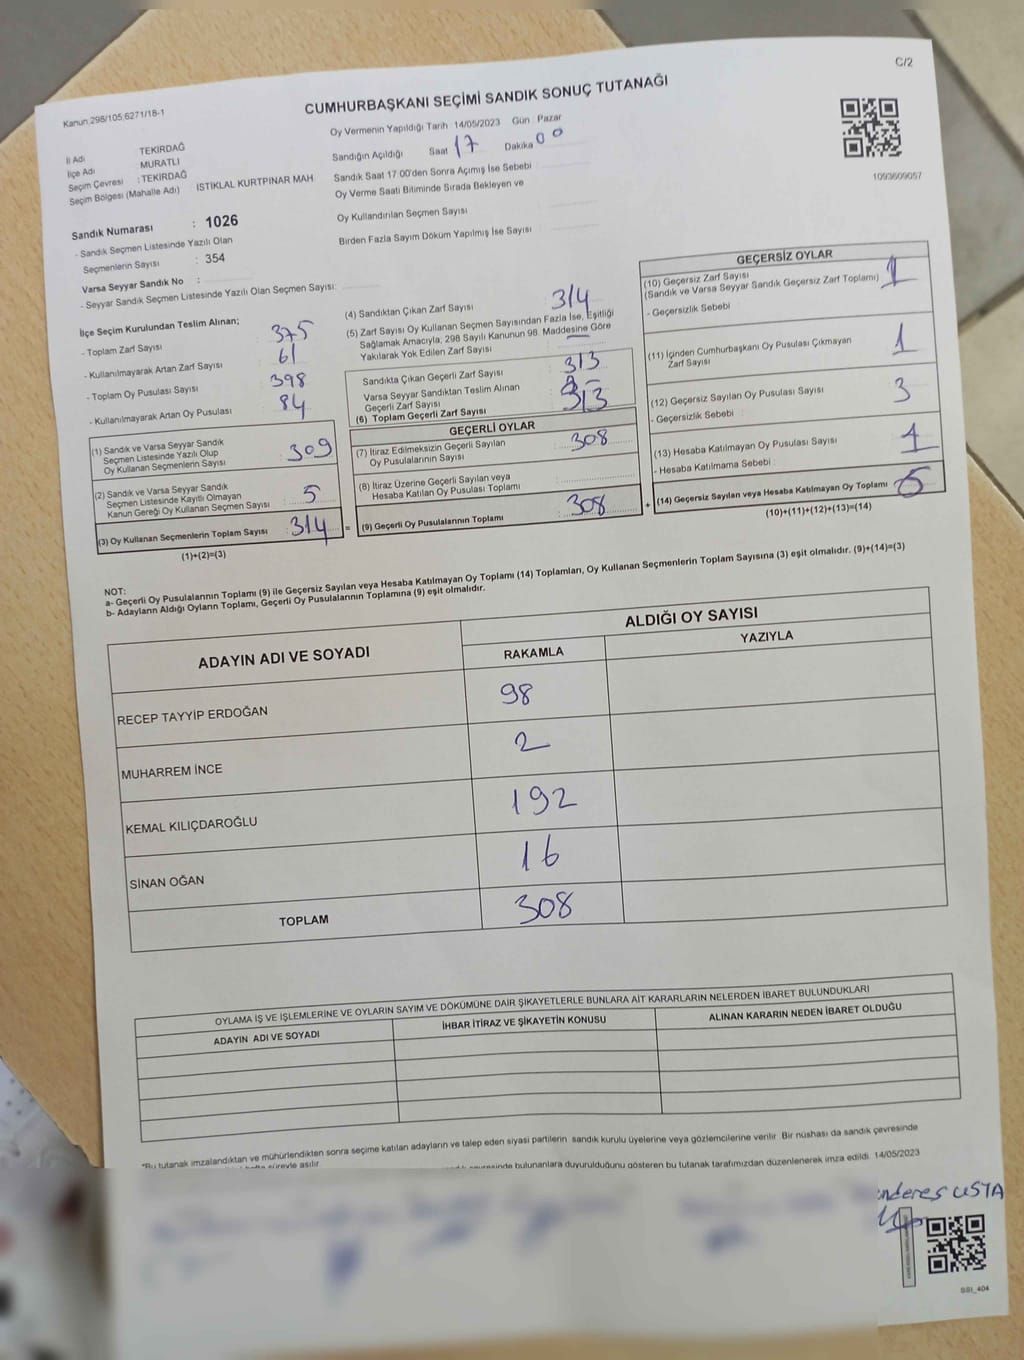 C/2
Kanun.298/105;6271/18-1
CUMHURBAŞKANI SEÇİMİ SANDIK SONUÇ TUTANAĞI
Oy Vermenin Yapıldığı Tarih 14/05/2023 Gün : Pazar
İl Adı TEKİRDAĞ
İlçe Adı MURATLI
Seçim Çevresi : TEKİRDAĞ
Seçim Bölgesi (Mahalle Adı) ISTIKLAL KURTPINAR MAH
Sandığın Açıldığı Saat 17 Dakika 00
Sandık Saat 17.00'den Sonra Açımış İse Sebebi
Oy Verme Saati Bitiminde Sırada Bekleyen ve
Oy Kullandırılan Seçmen Sayısı
Birden Fazla Sayım Döküm Yapılmış İse Sayısı
1093609057
Sandık Numarası : 1026
- Sandık Seçmen Listesinde Yazılı Olan
Seçmenlerin Sayısı : 354
Varsa Seyyar Sandık No :
- Seyyar Sandık Seçmen Listesinde Yazılı Olan Seçmen Sayısı:
İlçe Seçim Kurulundan Teslim Alınan;
- Toplam Zarf Sayısı 375
- Kullanılmayarak Artan Zarf Sayısı 61
- Toplam Oy Pusulası Sayısı : 398
- Kullanılmayarak Artan Oy Pusulası 84
(1) Sandık ve Varsa Seyyar Sandık
Seçmen Listesinde Yazılı Olup
Oy Kullanan Seçmenlerin Sayısı : 309
(2) Sandık ve Varsa Seyyar Sandık
Seçmen Listesinde Kayıtlı Olmayan
Kanun Gereği Oy Kullanan Seçmen Sayısı : 5
(3) Oy Kullanan Seçmenlerin Toplam Sayısı : 314 =
(1)+(2)=(3)
(4) Sandıktan Çıkan Zarf Sayısı 314
(5) Zarf Sayısı Oy Kullanan Seçmen Sayısından Fazla İse, Eşitliği
Sağlamak Amacıyla, 298 Sayılı Kanunun 98. Maddesine Göre
Yakılarak Yok Edilen Zarf Sayısı
Sandıkta Çıkan Geçerli Zarf Sayısı : 313
Varsa Seyyar Sandıktan Teslim Alınan
Geçerli Zarf Sayısı
(6) Toplam Geçerli Zarf Sayısı : 313
GEÇERLİ OYLAR
(7) İtiraz Edilmeksizin Geçerli Sayılan
Oy Pusulalarının Sayısı 308
(8) İtiraz Üzerine Geçerli Sayılan veya
Hesaba Katılan Oy Pusulası Toplamı
(9) Geçerli Oy Pusulalarının Toplamı : 308 +
GEÇERSİZ OYLAR
(10) Geçersiz Zarf Sayısı
(Sandık ve Varsa Seyyar Sandık Geçersiz Zarf Toplamı) 1
- Geçersizlik Sebebi
(11) İçinden Cumhurbaşkanı Oy Pusulası Çıkmayan
Zarf Sayısı 1
(12) Geçersiz Sayılan Oy Pusulası Sayısı 3
- Geçersizlik Sebebi :
(13) Hesaba Katılmayan Oy Pusulası Sayısı 1
- Hesaba Katılmama Sebebi :
(14) Geçersiz Sayılan veya Hesaba Katılmayan Oy Toplamı
(10)+(11)+(12)+(13)=(14)
NOT:
a- Geçerli Oy Pusulalarının Toplamı (9) ile Geçersiz Sayılan veya Hesaba Katılmayan Oy Toplamı (14) Toplamları, Oy Kullanan Seçmenlerin Toplam Sayısına (3) eşit olmalıdır. (9)+(14)=(3)
b- Adayların Aldığı Oyların Toplamı, Geçerli Oy Pusulalarının Toplamına (9) eşit olmalıdır.
ADAYIN ADI VE SOYADI
ALDIĞI OY SAYISI
RAKAMLA YAZIYLA
RECEP TAYYİP ERDOĞAN 98
MUHARREM İNCE 2
KEMAL KILIÇDAROĞLU 192
SİNAN OĞAN 16
TOPLAM 308
OYLAMA İŞ VE İŞLEMLERİNE VE OYLARIN SAYIM VE DÖKÜMÜNE DAİR ŞİKAYETLERLE BUNLARA AİT KARARLARIN NELERDEN İBARET BULUNDUKLARI
ADAYIN ADI VE SOYADI İHBAR İTİRAZ VE ŞİKAYETİN KONUSU ALINAN KARARIN NEDEN İBARET OLDUĞU
*Bu tutanak imzalandıktan ve mühürlendikten sonra seçime katılan adayların ve talep eden siyasi partilerin sandık kurulu üyelerine veya gözlemcilerine verilir. Bir nüshası da sandık çevresinde
bulunanlara duyurulduğunu gösteren bu tutanak tarafımızdan düzenlenerek imza edildi. 14/05/2023
nderes USTA
SSI_404